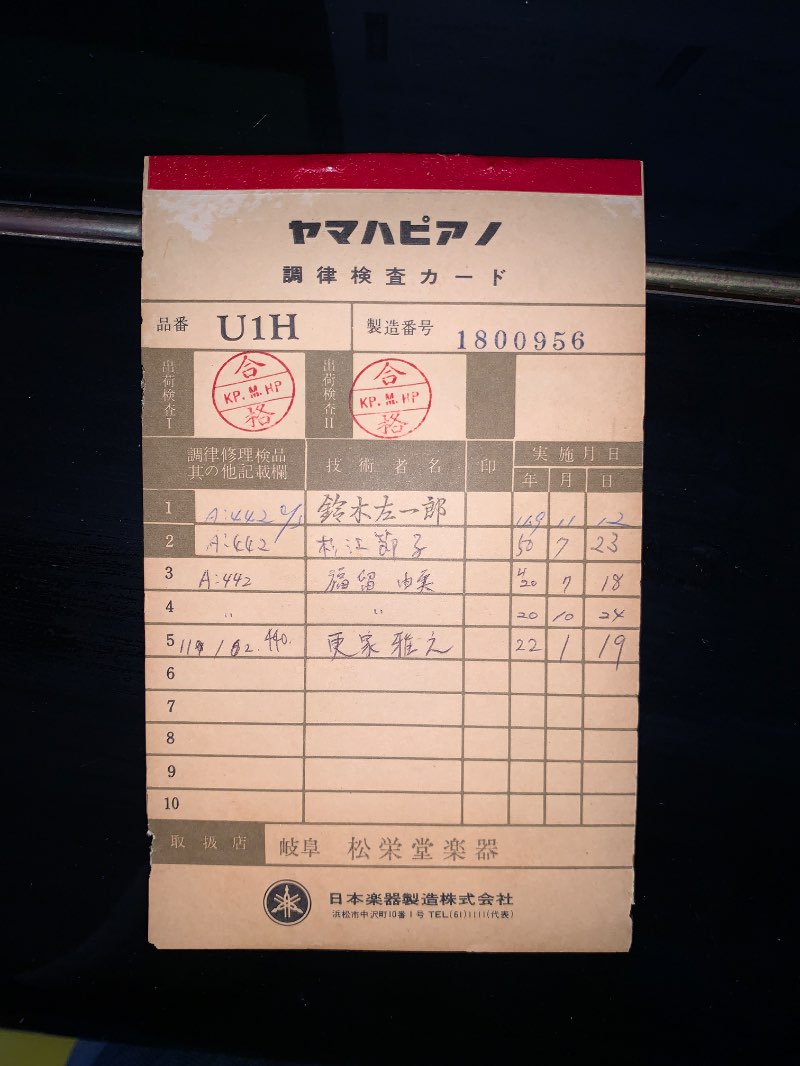 ヤマハピアノ
調律検査カード
品番 U1H 製造番号 1800956
出荷検査I 合格 KP.M.HP 出荷検査II 合格 KP.M.HP
調律修理検品其の他記載欄 技術者名 印 実施月日
年 月 日
1 A:442 鈴木左一郎 49 11 12
2 A:442 杉江節子 50 7 23
3 A:442 福留 由美 20 7 18
4 〃 〃 20 10 24
5 440. 更家雅之 22 1 19
6
7
8
9
10
取扱店 岐阜 松栄堂楽器
日本楽器製造株式会社
浜松市中沢町10番1号 TEL(61)1111(代表)